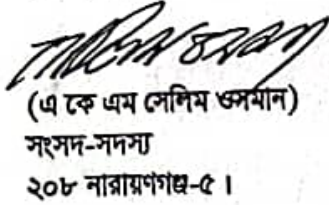 (এ কে এম সেলিম ওসমান)
সংসদ-সদস্য
২০৮ নারায়ণগঞ্জ-৫।